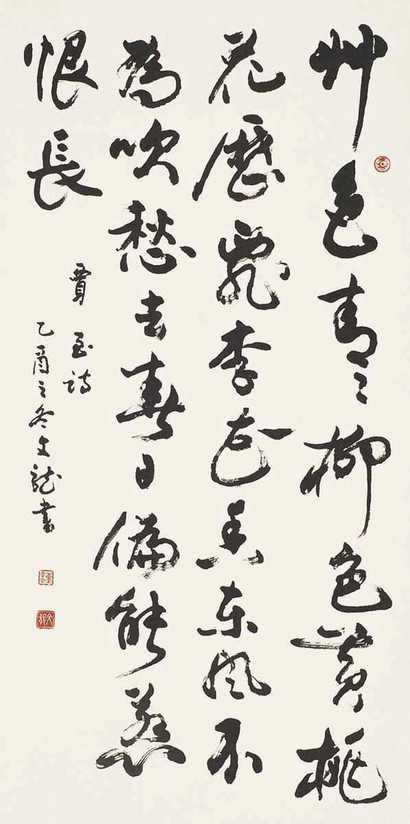 艸色青〻柳色黃桃
花歷亂李花香東風不
為吹愁去春日偏能惹
恨長
賈至詩
乙酉之冬文龍書